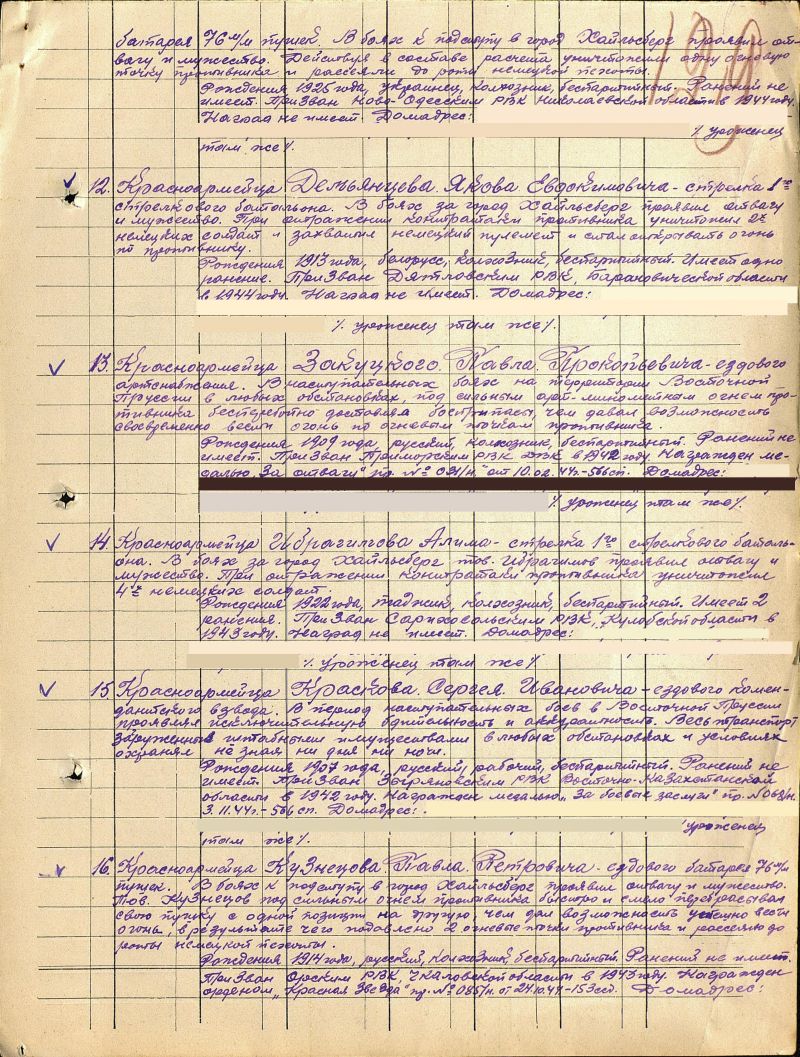 батарея 76 м/м пушек. В боях к подступу в город Хайльсберг проявил от-
вагу и мужество. Действуя в составе расчета уничтожили одну огневую
точку противника и рассеяли до роты немецкой пехоты.
Рождения 1926 года, украинец, колхозник, беспартийный. Ранений не
имеет. Призван Ново-Одесским РВК Николаевской области в 1944 году.
Наград не имеет. Домадрес:
% уроженец
там же %.
12. Красноармейца Демьянцева Якова Евдокимовича - стрелка 1го
стрелкового батальона. В боях за город Хайльсберг проявил отвагу
и мужество. При отражении контратаки противника уничтожил 2х
немецких солдат и захватил немецкий пулемет и стал открывать огонь
по противнику.
Рождения 1913 года, белорусс, колхозник, беспартийный. Имеет одно
ранение. Призван Дятловским РВК, Барановической области
в 1944 году. Наград не имеет. Домадрес:
% уроженец там же %.
13. Красноармейца Закуцкого Павла Прокопьевича - ездового
артснабжения. В наступательных боях на территории Восточной
Пруссии в любых обстановках, под сильным арт-минометным огнем про-
тивника бесперебойно доставлял боеприпасы, чем давал возможность
своевременно вести огонь по огневым точкам противника.
Рождения 1909 года, русский, колхозник, беспартийный. Ранений не
имеет. Призван Приморским РВК ДВК в 1942 году. Награжден ме-
далью "За отвагу" пр. № 031/н. от 10.02.44г.-566сп. Домадрес:
% уроженец там же %.
14. Красноармейца Ибрагимова Алима - стрелка 1го стрелкового баталь-
она. В боях за город Хайльсберг тов. Ибрагимов проявил отвагу и
мужество. При отражении контратаки противника уничтожил
4х немецких солдат.
Рождения 1922 года, таджик, колхозник, беспартийный. Имеет 2
ранения. Призван РВК, Кулобской области в
1943 году. Наград не имеет. Домадрес:
% уроженец там же %.
15. Красноармейца Краскова Сергея Ивановича - ездового комен-
дантского взвода. В период наступательных боев в Восточной Пруссии
проявлял исключительную бдительность и аккуратность. Весь транспорт
загруженный штабными имуществами в любых обстановках и условиях
охранял не зная ни дня ни ночи.
Рождения 1907 года, русский, рабочий, беспартийный. Ранений не
имеет. Призван Зыряновским РВК Восточно-Казахстанской
области в 1942 году. Награжден медалью "За боевые заслуги" пр. № 068/н.
3.11.44г-566 сп. Домадрес:
уроженец
там же %.
16. Красноармейца Кузнецова Павла Петровича - ездового батареи 76 м/м
пушек. В боях к подступу в город Хайльсберг проявил отвагу и мужество.
Тов. Кузнецов под сильным огнем противника быстро и смело перебрасывал
свою пушку с одной позиции на другую, чем дал возможность успешно вести
огонь, в результате чего подавлено 2 огневые точки противника и рассеяно до
роты немецкой пехоты.
Рождения 1914 года, русский, колхозник, беспартийный. Ранений не имеет.
Призван Орским РВК, Чкаловской области в 1943 году. Награжден
орденом "Красная Звезда" пр. № 085/н. от 24.10.44г-153ссд. Домадрес: